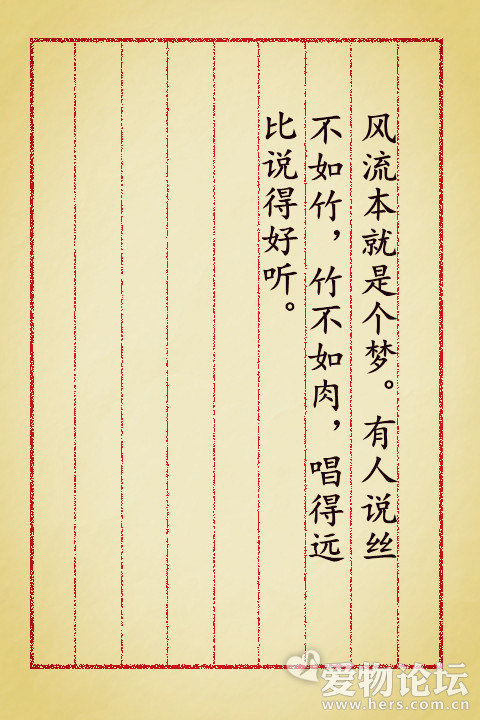 风流本就是个梦。有人说丝
不如竹，竹不如肉，唱得远
比说得好听。
爱物论坛
www.hers.com.cn